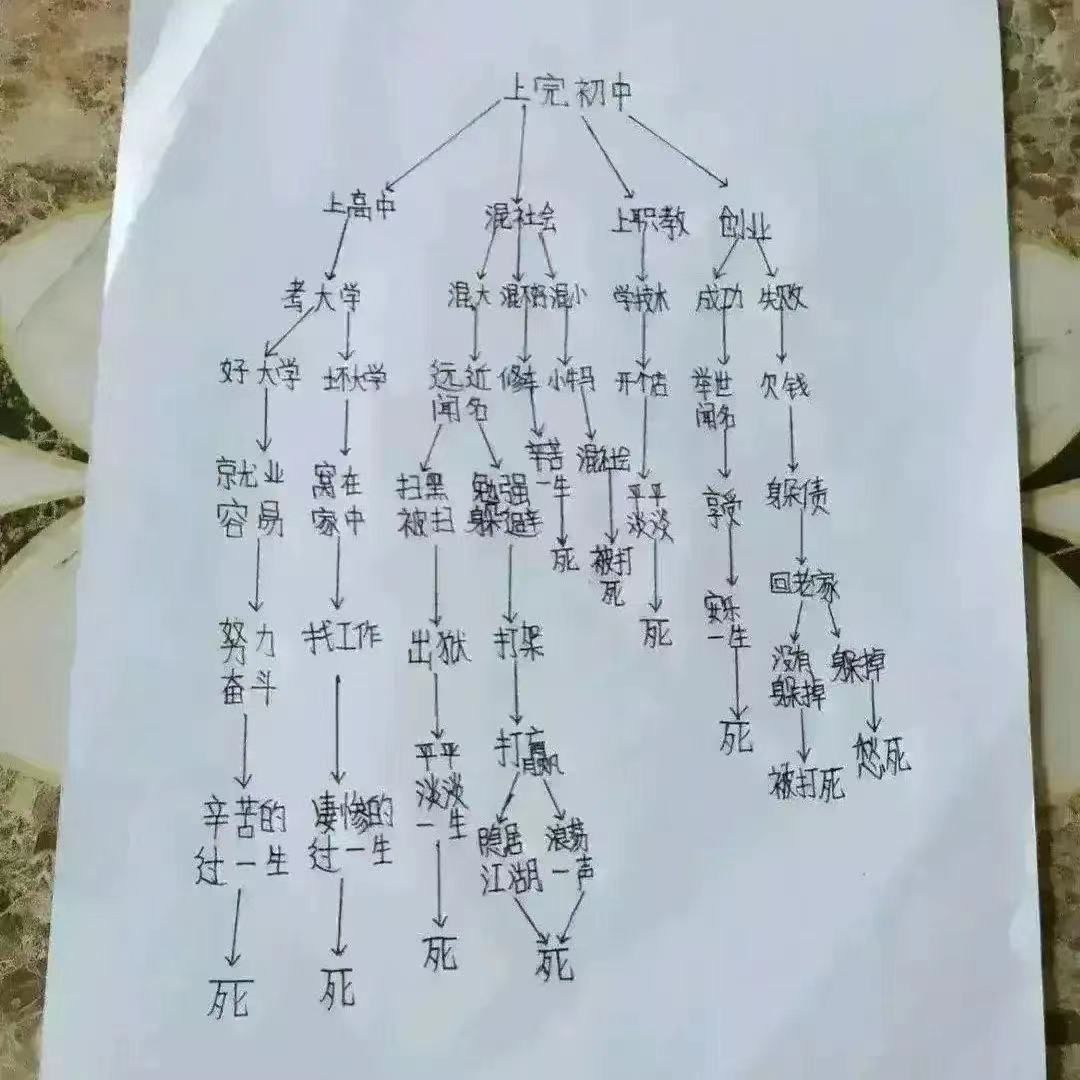 上完初中
上高中 混社会 上职教 创业
考大学 混大 混不好 混小 学技术 成功 失败
好大学 坏大学 远近 修车 小牛马 开个店 举世 欠钱
闻名 闻名
就业 窝在 扫黑 勉强 辛苦 混社会 平平 享受 躲债
容易 家中 被扫 躲避 一生 淡淡
死 被打 回老家
死
努力 找工作 出狱 打架 死 安乐 没有 躲掉
奋斗 一生 躲掉
平平 打赢 死 被打死 愁死
淡淡
一生
辛苦的 凄惨的 隐居 浪荡
过一生 过一生 江湖 一声
死 死 死 死